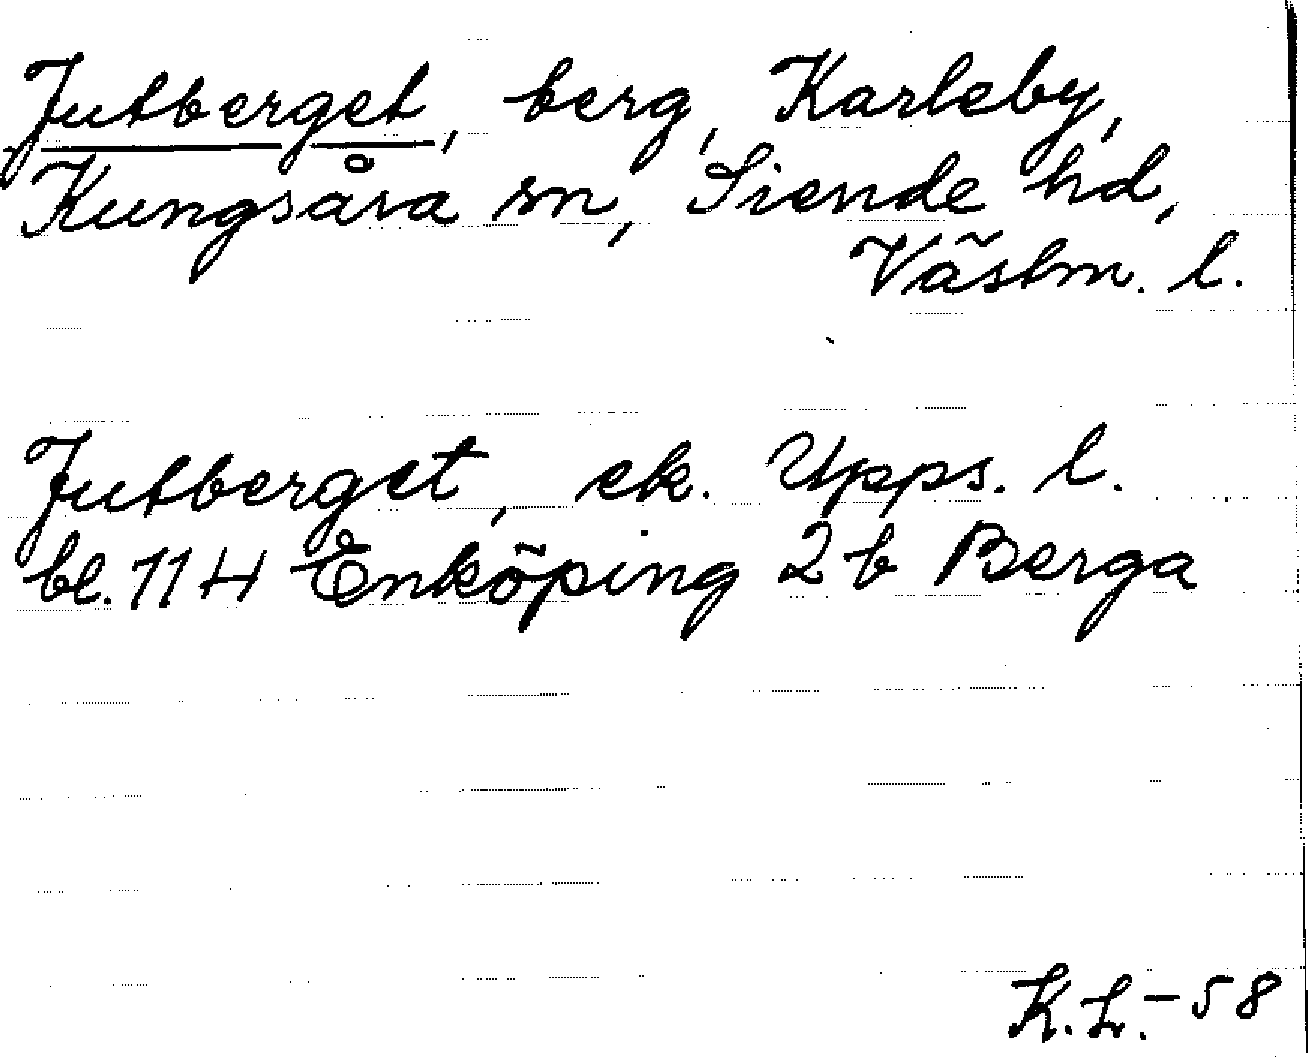 Jutberget, berg, Karleby,
Kungsåra sn, Siende hd,
Västm. l.
Jutberget, ek. Upps. l.
bl. 11 H Enköping 2 b Berga
K.L.-58